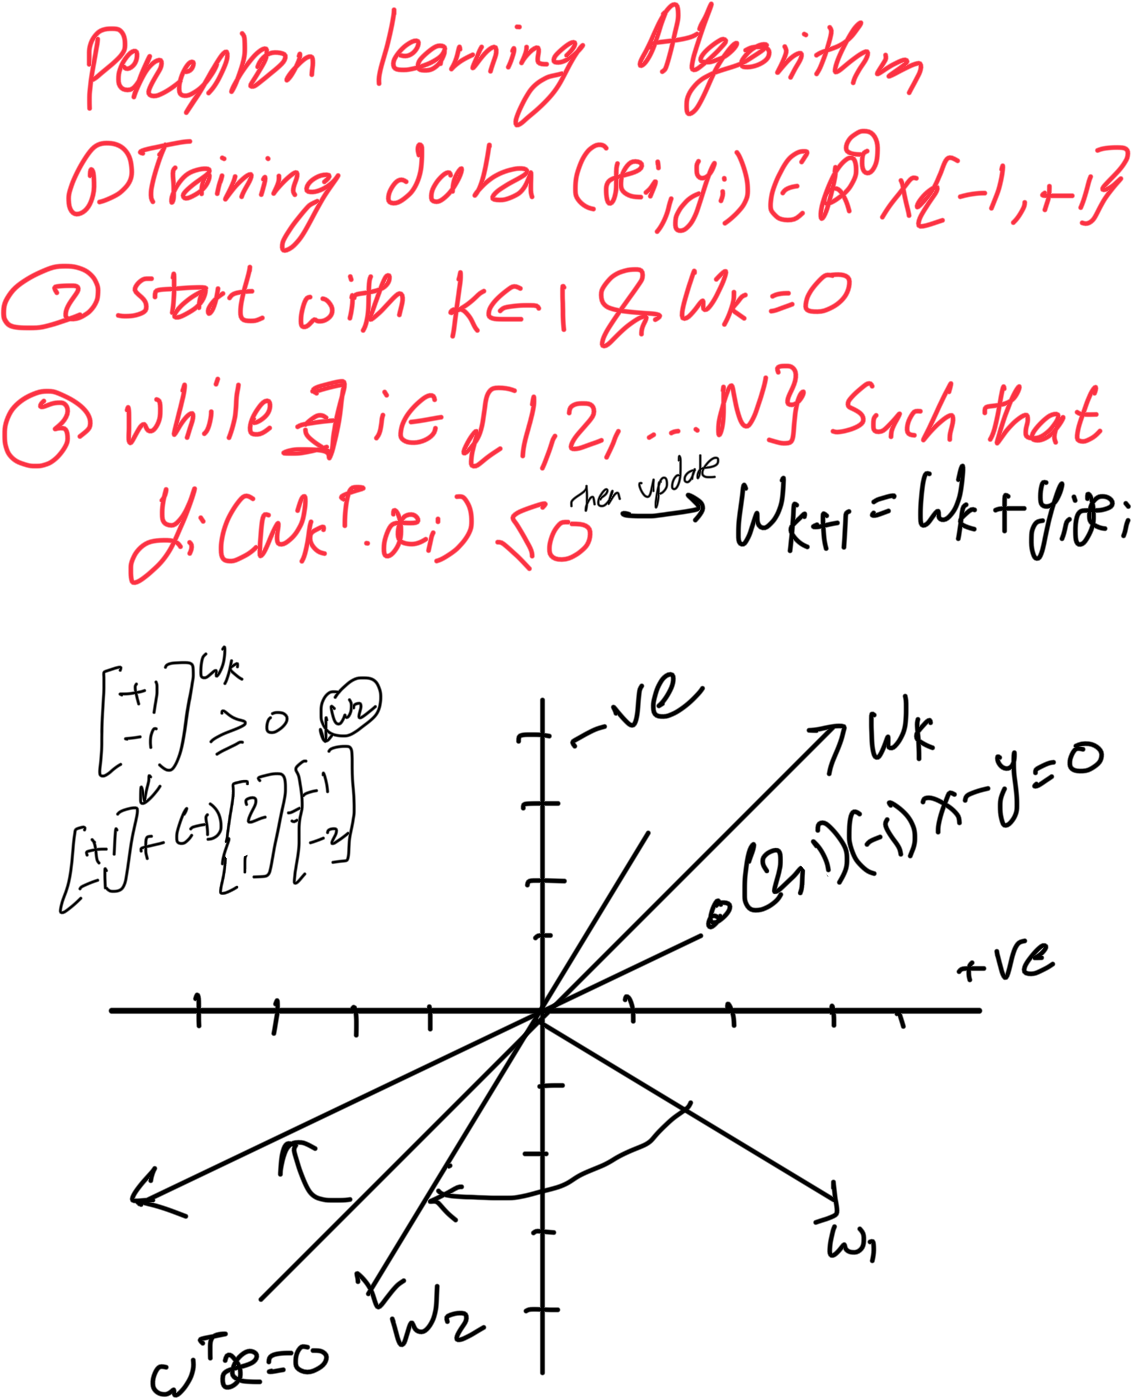 Perceptron learning Algorithm
① Training data (xi, yi) ∈ R^D x {-1, +1}
② Start with k ← 1 & Wk = 0
③ while ∃ i ∈ {1, 2, ... N} Such that
yi (Wk^T . xi) ≤ 0 then update → Wk+1 = Wk + yi xi
[+1 -1] Wk ≥ 0 W2
[+1 -1] + (-1) [2 1] = [-1 -2]
-ve
Wk
(2,1)(-1) x-y=0
+ve
W1
W2
W^T x = 0